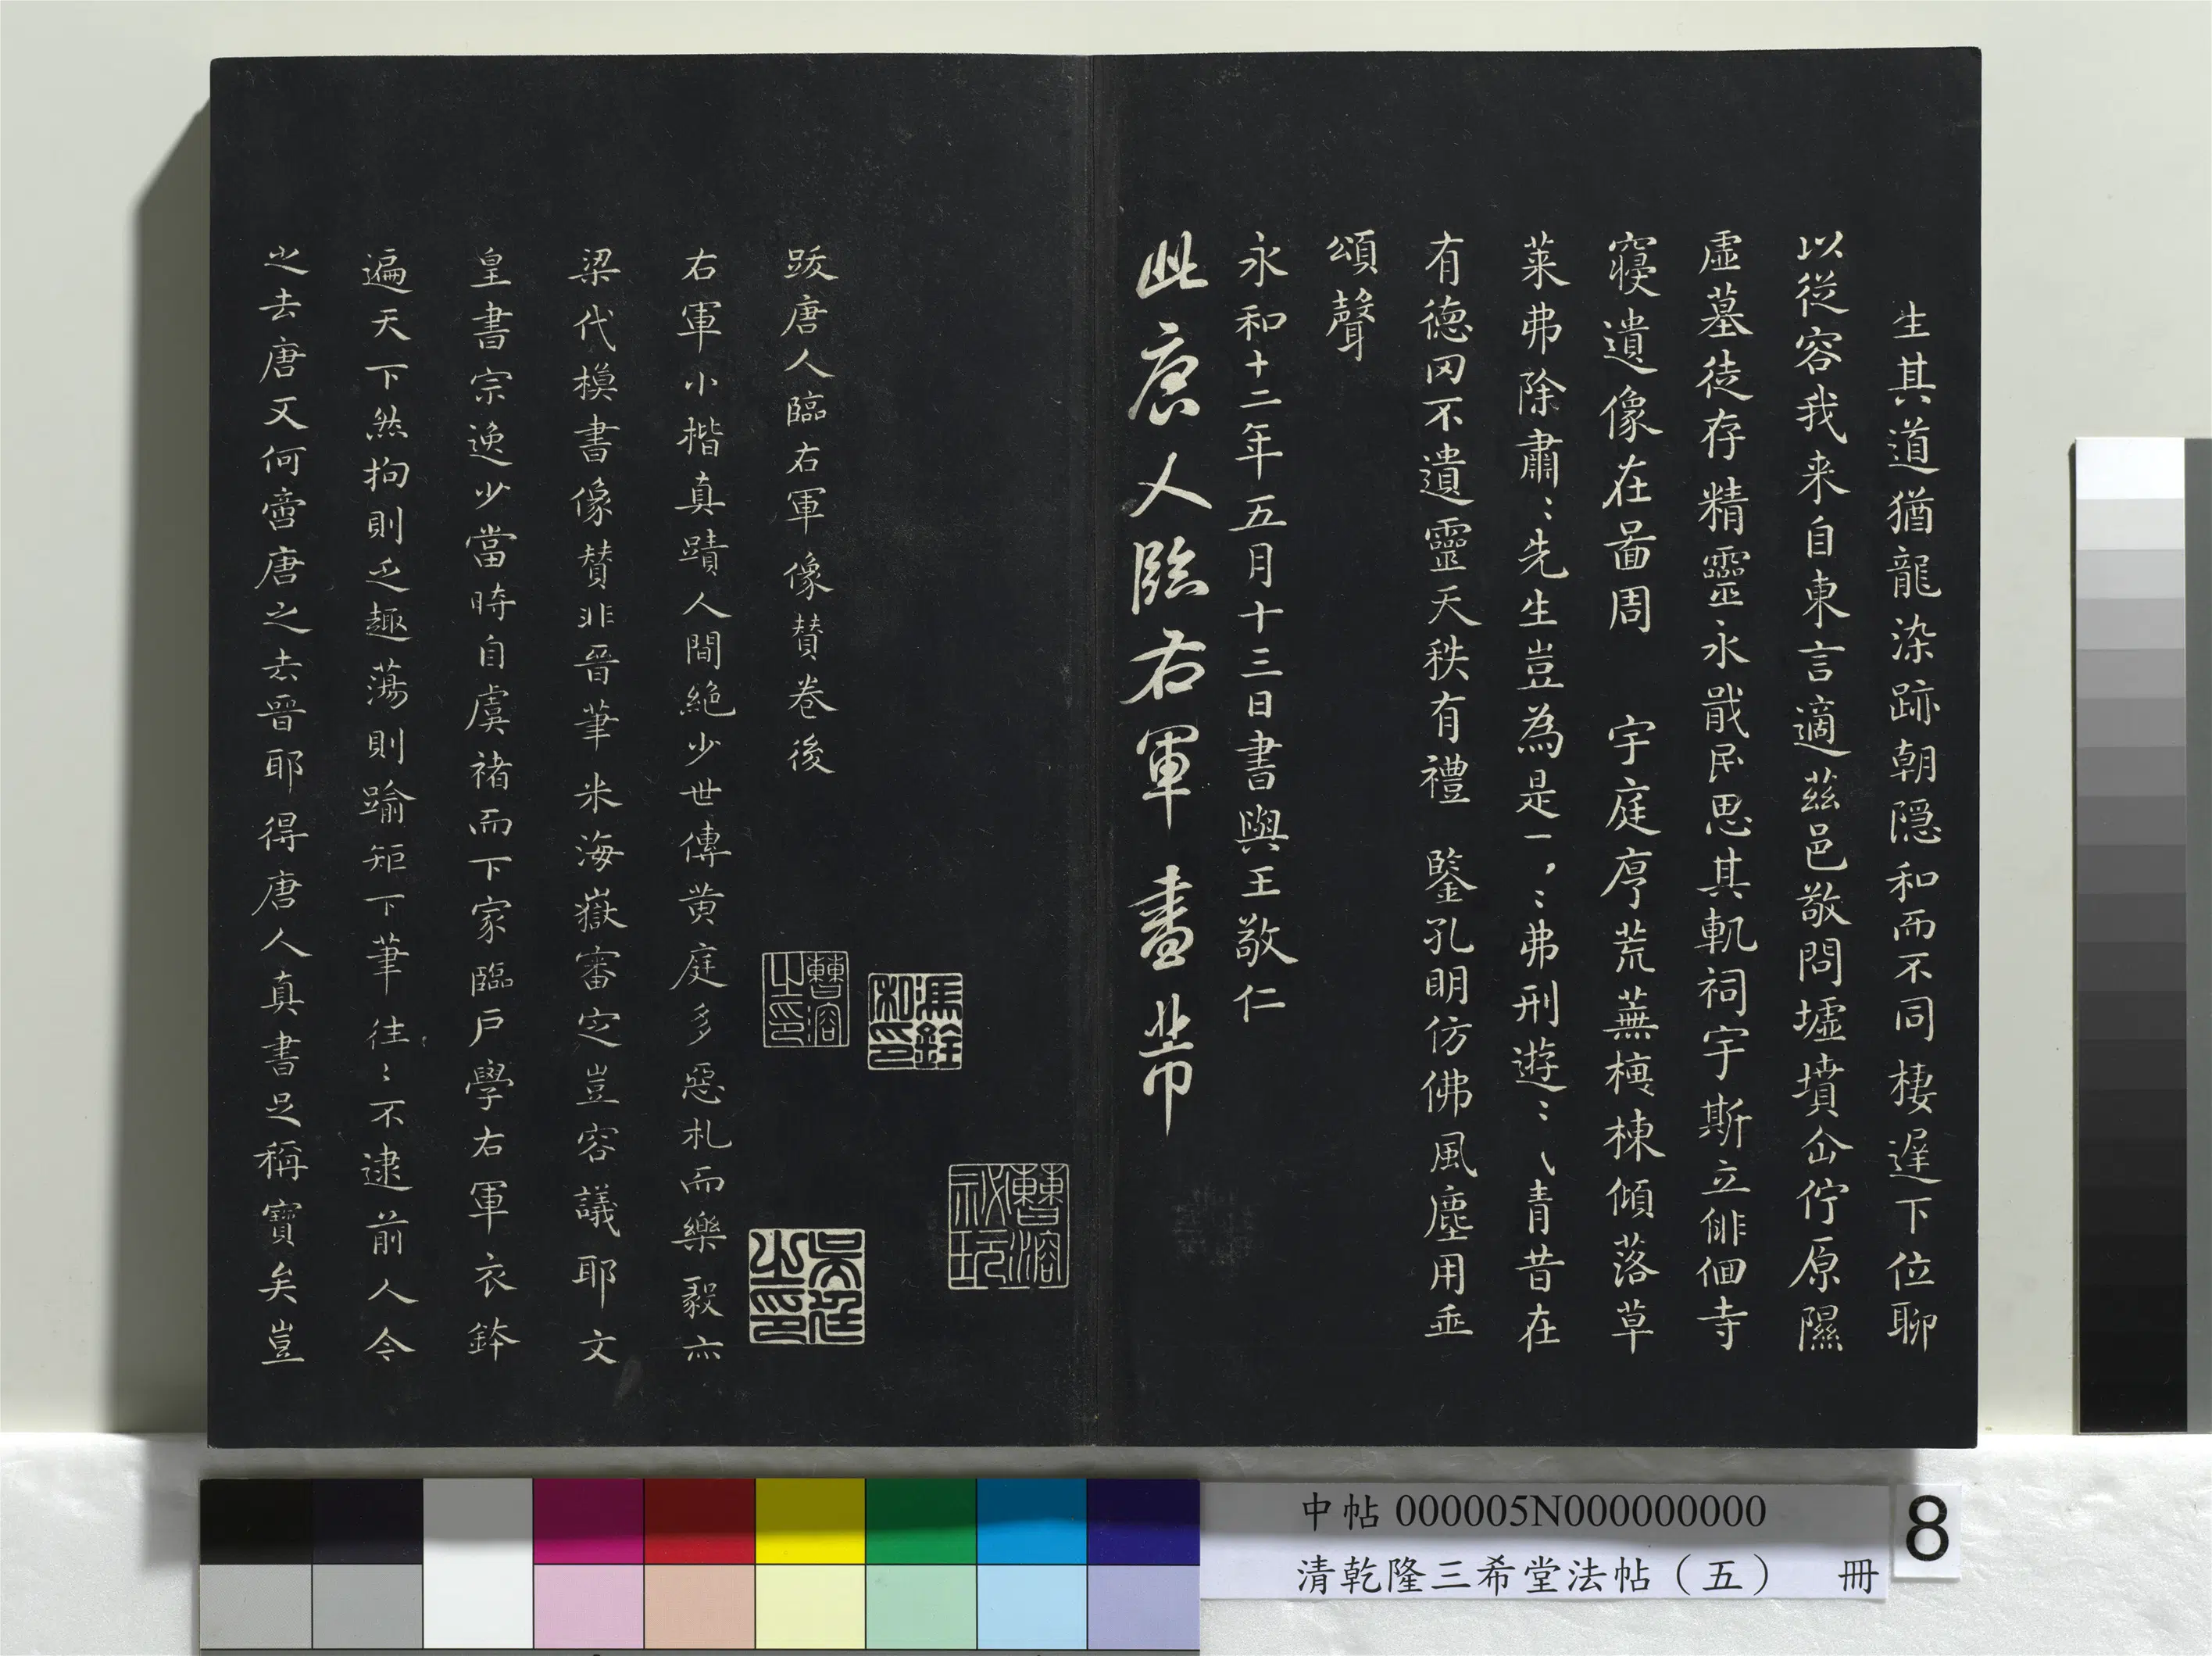 生其道猶龍染跡朝隱和而不同棲遲下位聊
以從容我来自東言適茲邑敬問墟墳企佇原隰
虛墓徒存精靈永戢民思其軌祠宇斯立俳佪寺
寝遺像在啚周 宇庭序荒蕪榱棟傾落草
莱弗除肅〻先生豈為是〻〻弗刑遊〻〻青昔在
有德冈不遺靈天秩有禮 鑒孔明仿佛風塵用垂
頌聲
永和十二年五月十三日書與王敬仁
此唐人臨右軍畫
曹溶秘玩
馮銓和印
曹溶之印
吳廷之印
跋唐人臨右軍像贊卷後
右軍小楷真蹟人間絶少世傳黄庭多惡札而樂毅亦
梁代模書像賛非晉筆米海嶽審定豈容議耶文
皇書宗逸少當時自虞褚而下家臨戶學右軍衣鉢
遍天下然拘則乏趣蕩則踰矩下筆往〻不逮前人今
之去唐又何啻唐之去晉耶得唐人真書足稱寶矣豈
中帖 000005N000000000
清乾隆三希堂法帖（五） 冊
8